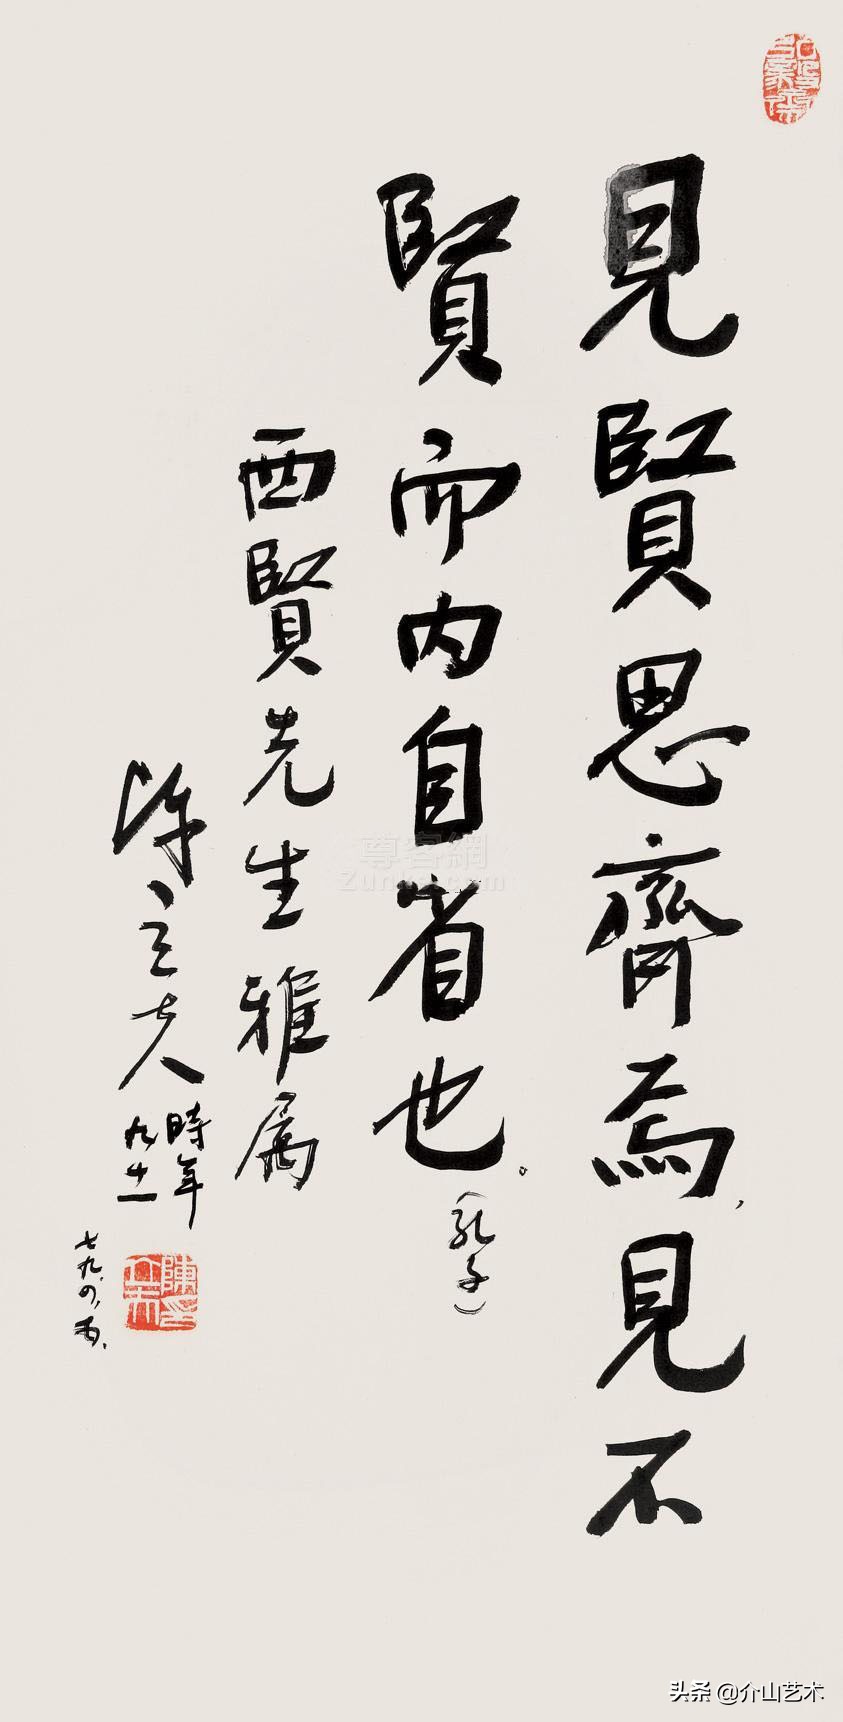 見賢思齊焉，見不
賢而内自省也。（孔子）
西賢先生雅属
陳立夫
時年
九十一
七九、四、
陳立夫印
尊客網
Zunke.com
头条 @介山艺术